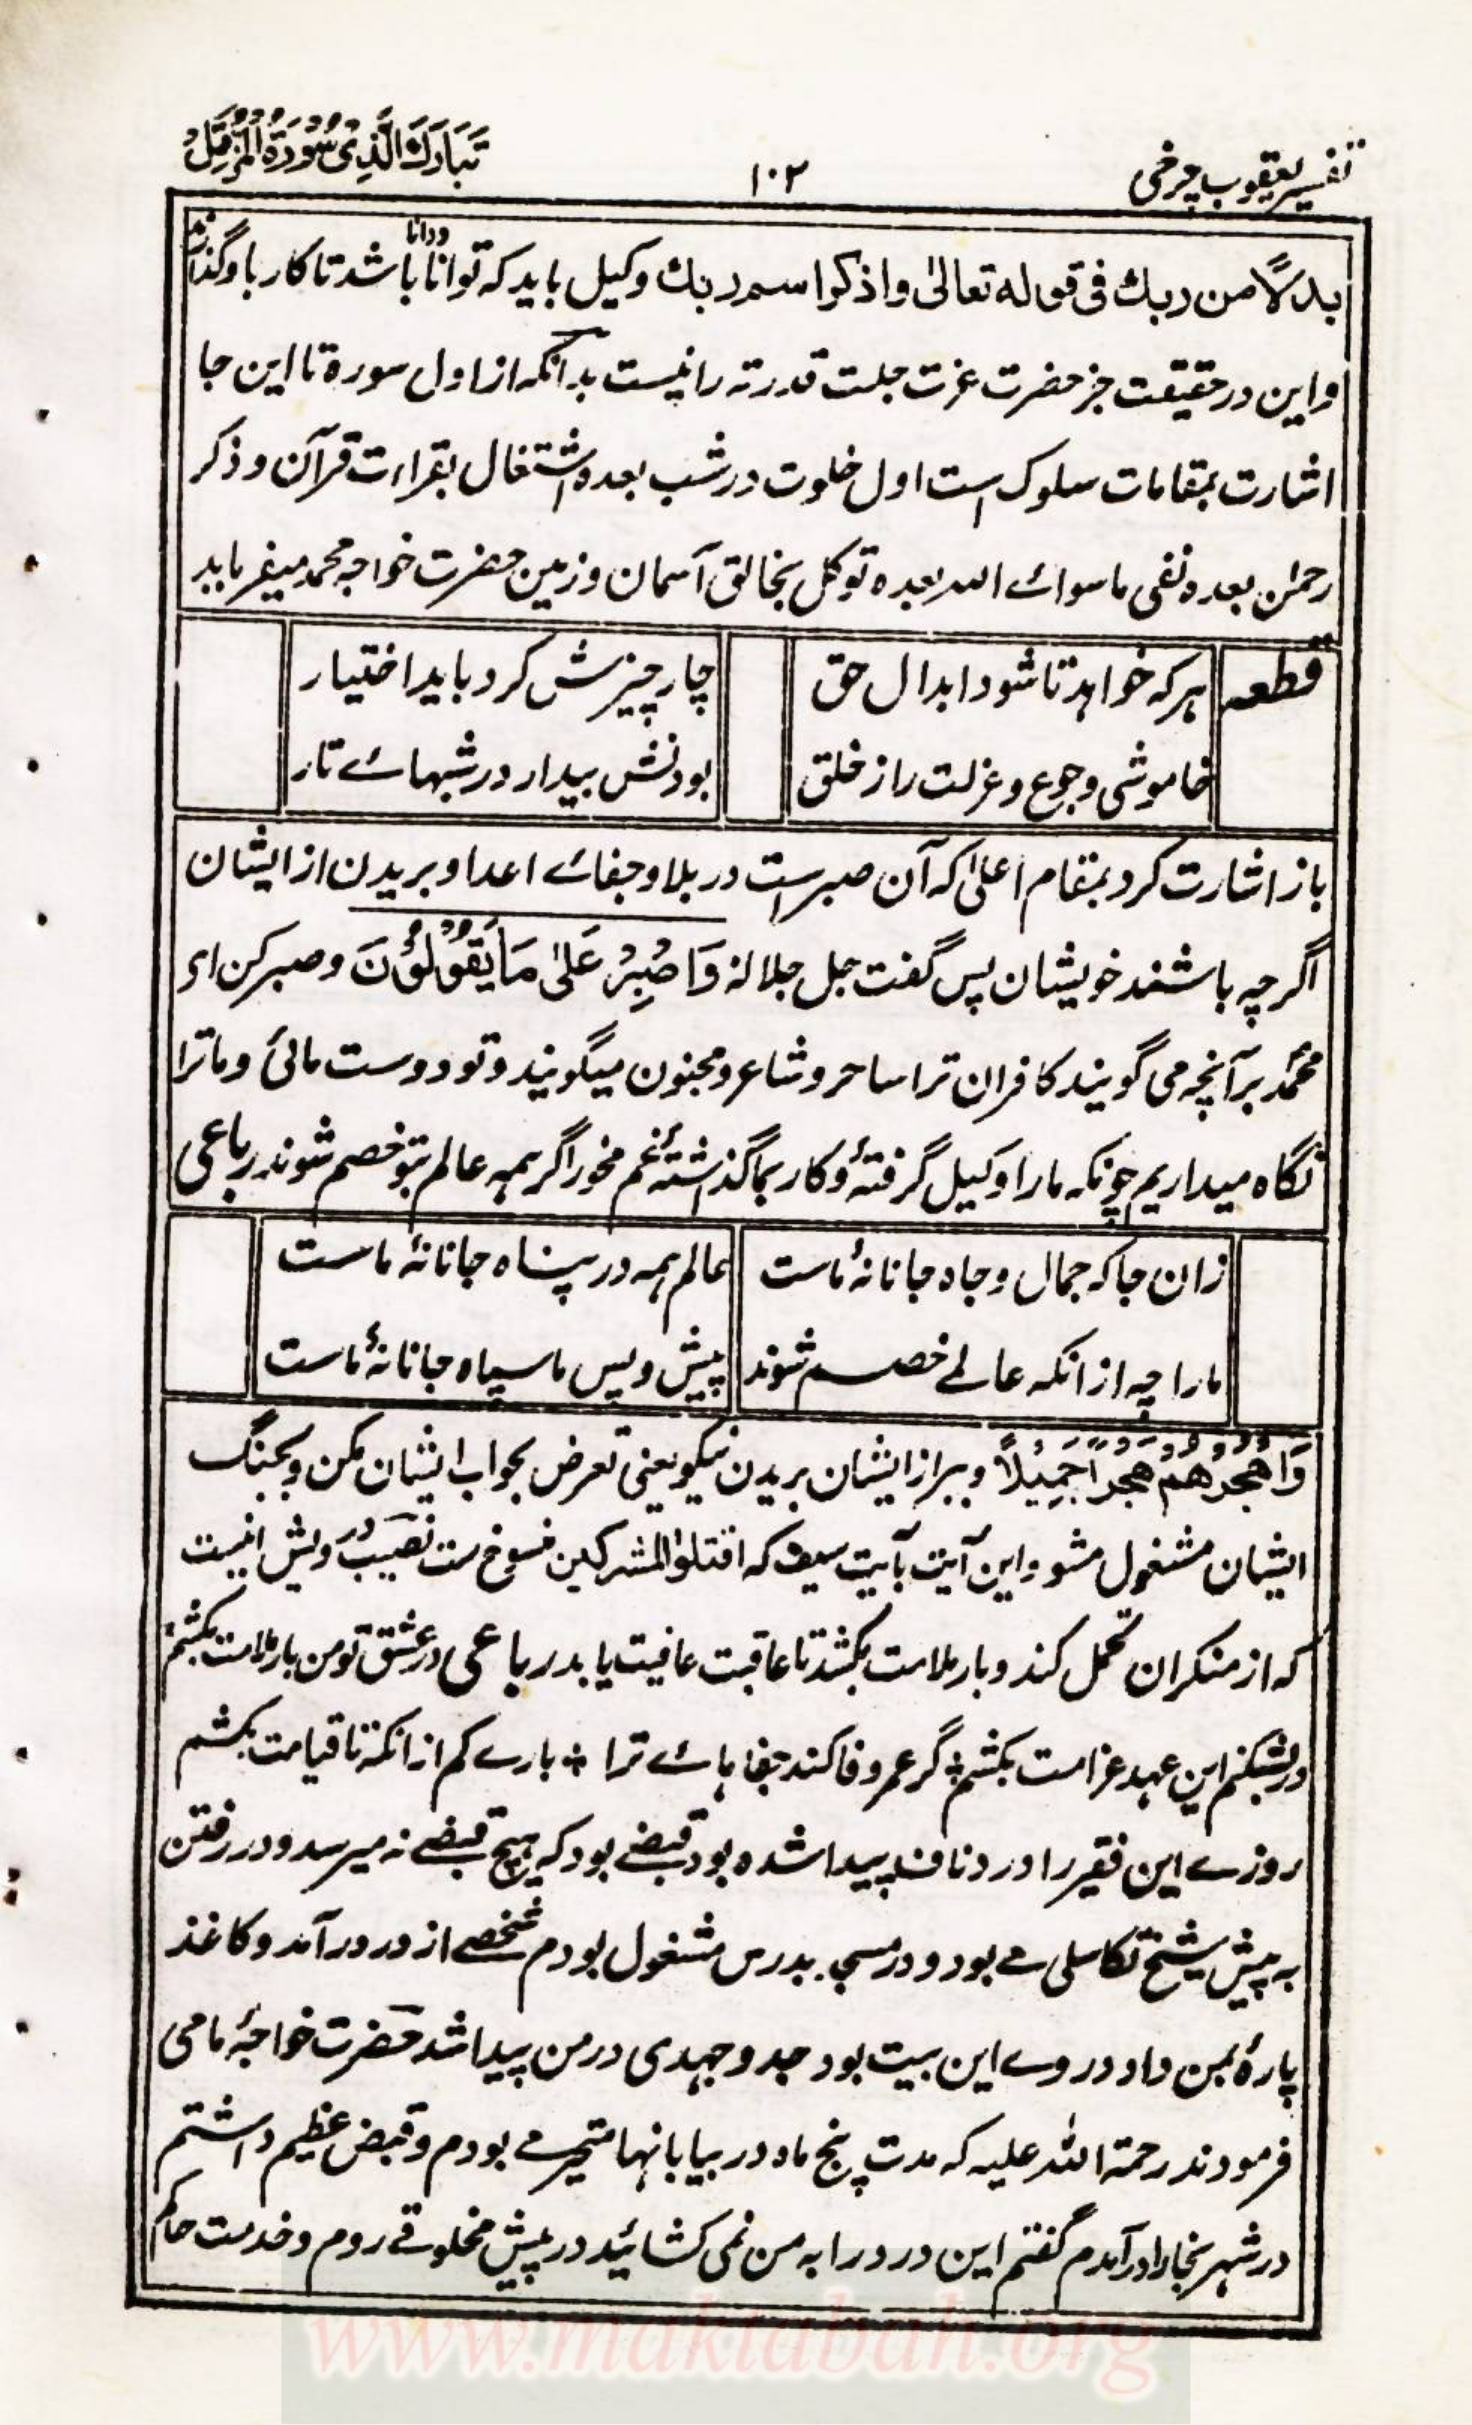 تفسیر یعقوب چرخی
۱۰۲
تَبَارَكَ الَّذِیْ سُوْرَةُ الْمُزَّمِّلْ
بدلًا من ربك فی قوله تعالیٰ واذکر اسم ربك وکیل باید که توانا ودانا باشد تا کار باو گذارند
واین در حقیقت جز حضرت عزت جلت قدرته را نیست بدانکه از اول سورة تا این جا
اشارت بمقامات سلوک است اول خلوت در شب بعده اشتغال بقراءت قرآن و ذکر
رحمٰن بعده نفی ماسوائے الله بعده توکل بخالق آسمان وزمین حضرت خواجه محمد میفرماید
قطعه
هر که خواهد تا شود ابدال حق
چار چیزش کرد باید اختیار
خاموشی وجوع وعزلت را ز خلق
بودنش بیدار در شبهائے تار
باز اشارت کرد بمقام اعلیٰ که آن صبر است در بلا و جفائے اعدا و بریدن از ایشان
اگرچه باشند خویشان پس گفت جل جلاله وَاصْبِرْ عَلیٰ مَا یَقُوْلُوْنَ و صبر کن ای
محمد بر آنچه می گویند کافران ترا ساحر و شاعر و مجنون میگویند و تو دوست مائی و ما ترا
نگاه میداریم چونکه ما را وکیل گرفتهٔ و کار بما گذاشتهٔ غم مخور اگر همه عالم بتو خصم شوند رباعی
زان جا که جمال و جاه جانانهٔ ماست
عالم همه در پناه جانانهٔ ماست
ما را چه ازانکه عالمے خصم شوند
پیش و پس ما سپاه جانانهٔ ماست
وَاهْجُرْهُمْ هَجْرًا جَمِیْلًا و ببر از ایشان بریدن نیکو یعنی تعرض بجواب ایشان مکن و بجنگ
ایشان مشغول مشو و این آیت بآیت سیف که اقتلوا المشرکین منسوخ ست نصیب درویش اینست
که از منکران تحمل کند و بار ملامت بکشد تا عاقبت عافیت یابد رباعی در عشق تو من بار ملامت بکشم
ور بشکنم این عهد غرامت بکشم ❊ گر عمر وفا کند جفاهائے ترا ❊ بارے کم ازانکه تا قیامت بکشم
روزے این فقیر را درد پیدا شده بود قبضے بود که هیچ قبضے نه میرسد و در رفتن
به پیش شیخ تکاسلی مے بود و در مسجد بدرس مشغول بودم شخصے از در در آمد و کاغذ
پارهٔ بمن داد در وے این بیت بود جد و جهدی در من پیدا شد حضرت خواجهٔ ما می
فرمودند رحمة الله علیه که مدت پنج ماه در بیابانها متحیر مے بودم و قبض عظیم داشتم
در شهر بخارا در آمدم گفتم این در در را به من نمی کشائید در پیش مخلوقے روم و خدمت حاکم
www.maktabah.org